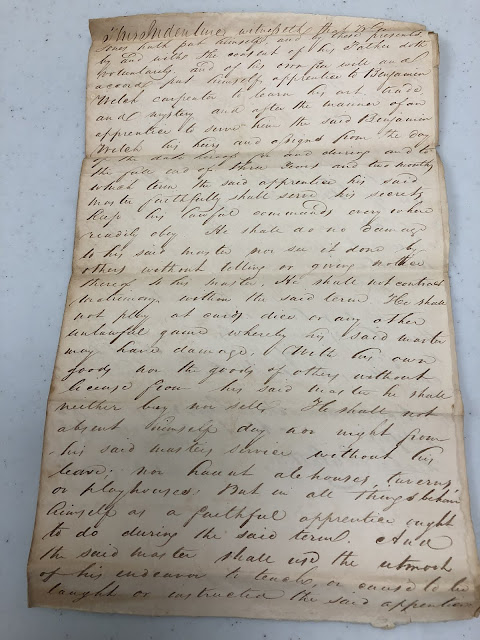 This Indenture witnesseth that
Jones hath put himself and by these presents,
by and with the consent of his Father doth
voluntarily and of his own free will and
accord put himself apprentice to Benjamin
Welch carpenter to learn his art trade
and mystery and after the manner of an
apprentice to serve him the said Benjamin
Welch his heirs and assigns from the day
of the date hereof for and during and to
the full end of three Years and two months
which term the said apprentice his said
master faithfully shall serve his secrets
keep his lawful commands every where
readily obey He shall do no damage
to his said master nor see it done by
others without telling or giving notice
thereof to his master. He shall not contract
matrimony within the said term He shall
not play at cards dice or any other
unlawful game whereby his said master
may have damage. With his own
goods nor the goods of others without
license from his said master he shall
neither buy nor sell, He shall not
absent himself day nor night from
his said masters service without his
leave; nor haunt alehouses, taverns,
or playhouses But in all things behave
himself as a faithful apprentice ought
to do during the said term. And
the said master shall use the utmost
of his endeavor to teach or caused to be
taught or instructed the said apprentice